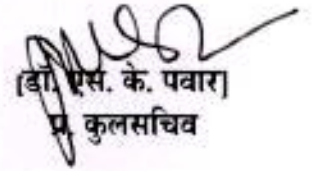 [डॉ. एस. के. पवार]
प्र. कुलसचिव